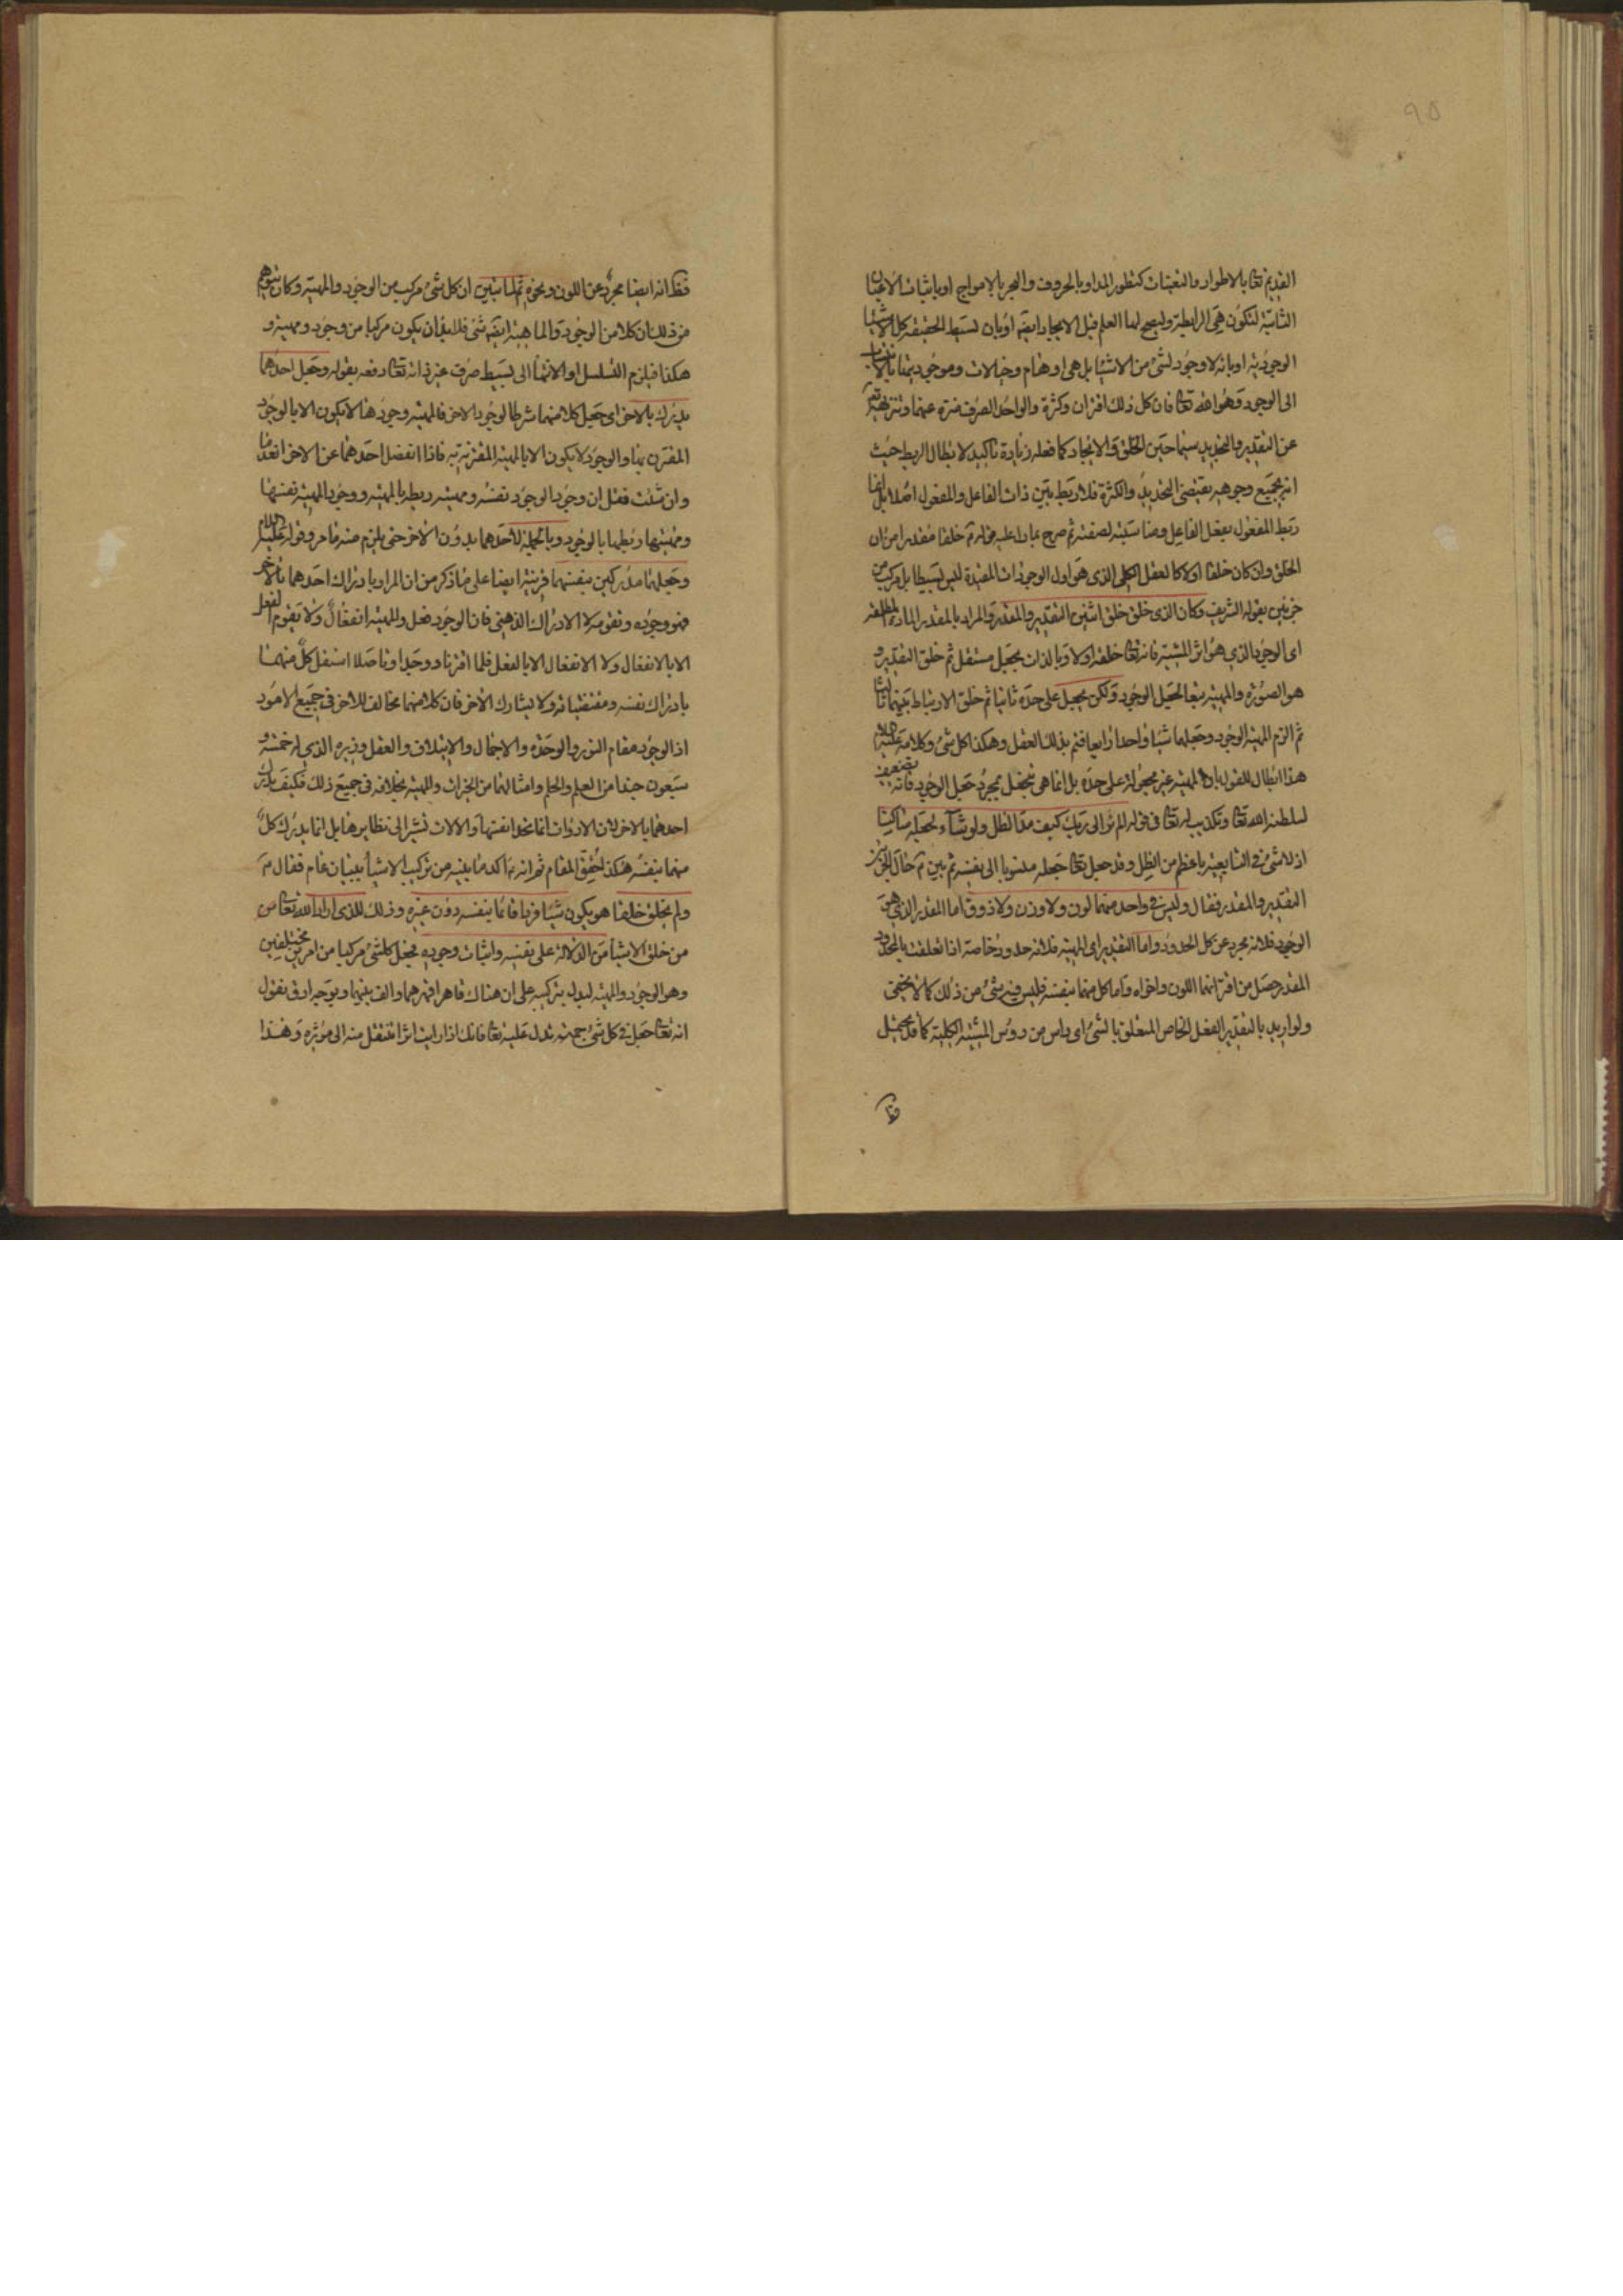 ٩٥
القديم تعا بالاطوار والتعينات كتطور المداد بالحروف والبحر بالامواج او باثبات الاعيان
الثابتة لتكون هى الرابطة وليصح لها العلم قبل الايجاد ايضه او بان بسيط الحقيقة كل الاشيا
الوجودية او بانه لا وجود لشئ من الاشيا بل هى اوهام وخيالات وموجوديتها بالانتساب
الى الوجود وهو الله تعا فان كل ذلك اقتران وكثرة والواحد الصرف منزه عنها وتنزيهه
عن التقدير والتحديد سيما حين الخلق والايجاد كما فعله زيادة تاكيد لابطال الربط حيث
انه بجميع وجوهه يقتضى التحديد والكثرة فلا ربط بين ذات الفاعل والمفعول اصلا بل انما
ربط المفعول بفعل الفاعل ومناسبته لصفته ثم صرح بما دل عليه قوله خلقا مقدرا من ان
الخلق وان كان خلقا اولا كالعقل الكلى الذى هو اول الوجودات المقيدة ليس بسيطا بل مركب من
جزئين بقوله الشريف وكان الذى خلق خلقين اثنين التقدير والمقدر والمراد بالمقدر المادة المطلقه
اى الوجود الذى هو اثر المشية فانه تعا خلقه اولا وبالذات بجعل مستقل ثم خلق التقدير و
هو الصورة والمهية تبعا لجعل الوجود ولكن بجعل على حدة ثانيا ثم خلق الارتباط بينهما ثالثا
ثم الزم المهية الوجود وجعلهما شيا واحدا رابعا فتم بذلك العقل وهكذا كل شئ وكلامه عليه السلام
هذا ابطال للقول بان المهية غير مجعولة على حدة بل انما هى تنجعل بمجرد جعل الوجود فانه تضعيف
لسلطنة الله تعا وتكذيب له تعا فى قوله الم تر الى ربك كيف مد الظل ولو شاء لجعله ساكنا
اذ لا شئ فى التابعية باعظم من الظل وقد جعل تعا جعله منسوبا الى نفسه ثم بين حال الجزئين
التقدير والمقدر فقال وليس فى واحد منهما لون ولا وزن ولا ذوق اما المقدر الذى هو
الوجود فلانه مجرد عن كل الحدود واما التقدير اى المهية فلانه حدود خاصة اذا تعلقت بالمحدود
المقدر حصل من اقترانهما اللون واخواه واما كل منهما بنفسه فليس فيه شئ من ذلك كما لا يخفى
ولو اريد بالتقدير الفعل الخاص المتعلق بالشئ اى راس من رؤس المشية الكلية كما قد يحتمل
فظا
فظا انه ايضا مجرد عن اللون ونحوه ثم لما تبين ان كل شئ مركب من الوجود والمهية وكان يتوهم
من ذلك ان كلا من الوجود والماهية ايضه شئ فلا بد ان يكون مركبا من وجود ومهية و
هكذا فيلزم التسلسل او الانتها الى بسيط صرف غير ذاته تعا دفعه بقوله وجعل احدهما
يدرك بالاخر اى جعل كلا منهما شرطا لوجود الاخر فالمهية وجودها لا يكون الا بالوجود
المقترن بها والوجود لا يكون الا بالمهية المقترنة به فاذا انفصل احدهما عن الاخر انعدما
وان شئت فقل ان وجود الوجود نفسه ومهيته ربطه بالمهية ووجود المهية نفسها
ومهيتها ربطها بالوجود وبالجملة لا احدهما بدون الاخر حتى يلزم منه ما مر وقوله عليه السلام
وجعلهما مدركين بنفسهما قرينة ايضا على ما ذكر من ان المراد بادراك احدهما بالاخر
هو وجوده وتقومه لا الادراك الذهنى فان الوجود فعل والمهية انفعال ولا تقوم للفعل
الا بالانفعال ولا الانفعال الا بالفعل فلما اقترنا ووجدا وتاصلا استقل كل منهما
بادراك نفسه ومقتضياته ولا يشارك الاخر فان كلا منهما مخالف للاخر فى جميع الامور
اذ الوجود مقام النور والوحدة والاجمال والايتلاف والعقل وزيره الذى له خمسة و
سبعون جندا من العلم والحلم وامثالهما من الخيرات والمهية بخلافه فى جميع ذلك فكيف يدرك
احدهما بالاخر لان الادوات انما تحد انفسها والالات تشير الى نظايرها بل انما يدرك كل
منهما بنفسه هكذا حقق المقام ثم انه اكد ما بينه من تركيب الاشيا ببيان عام فقال
ولم يخلق خلقا هو يكون شيا فردا قائما بنفسه دون غيره وذلك للذى اراد الله تعا من
من خلق الاشيا من الدلالة على نفسه واثبات وجوده فجعل كلشئ مركبا من امرين مختلفين
وهو الوجود والمهية ليدل بتركيبه على ان هناك قاهرا قهرهما والف بينهما وبوجه ادق نقول
انه تعا جعل فى كل شئ جهته تدل عليه تعا فانك اذا رايت اثرا تنتقل منه الى مؤثره وهذا